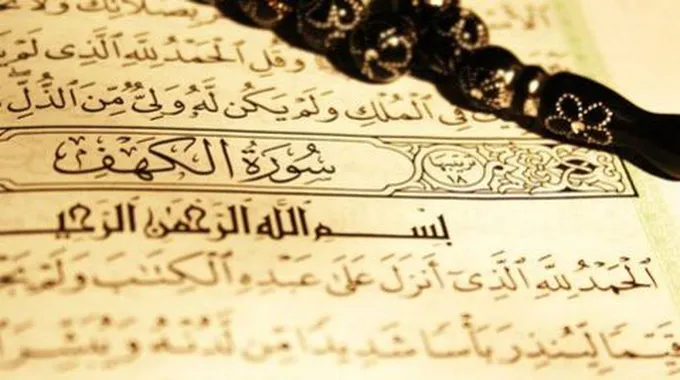 بصلاتك ولا
وَقُلِ ٱلْحَمْدُ لِلَّهِ ٱلَّذِى لَمْ
فِى ٱلْمُلْكِ وَلَمْ يَكُن لَّهُۥ وَلِىٌّ مِّنَ ٱلذُّلِّ
سُورَةُ الكَهْفِ ترتيبها ١٨
بِسْمِ اللَّهِ الرَّحْمَٰنِ الرَّحِي
ٱلْحَمْدُ لِلَّهِ ٱلَّذِىٓ أَنزَلَ عَلَىٰ عَبْدِهِ ٱلْكِتَٰبَ وَلَمْ
قَيِّمًا لِّيُنذِرَ بَأْسًا شَدِيدًا مِّن لَّدُنْهُ وَيُبَشِّرَ